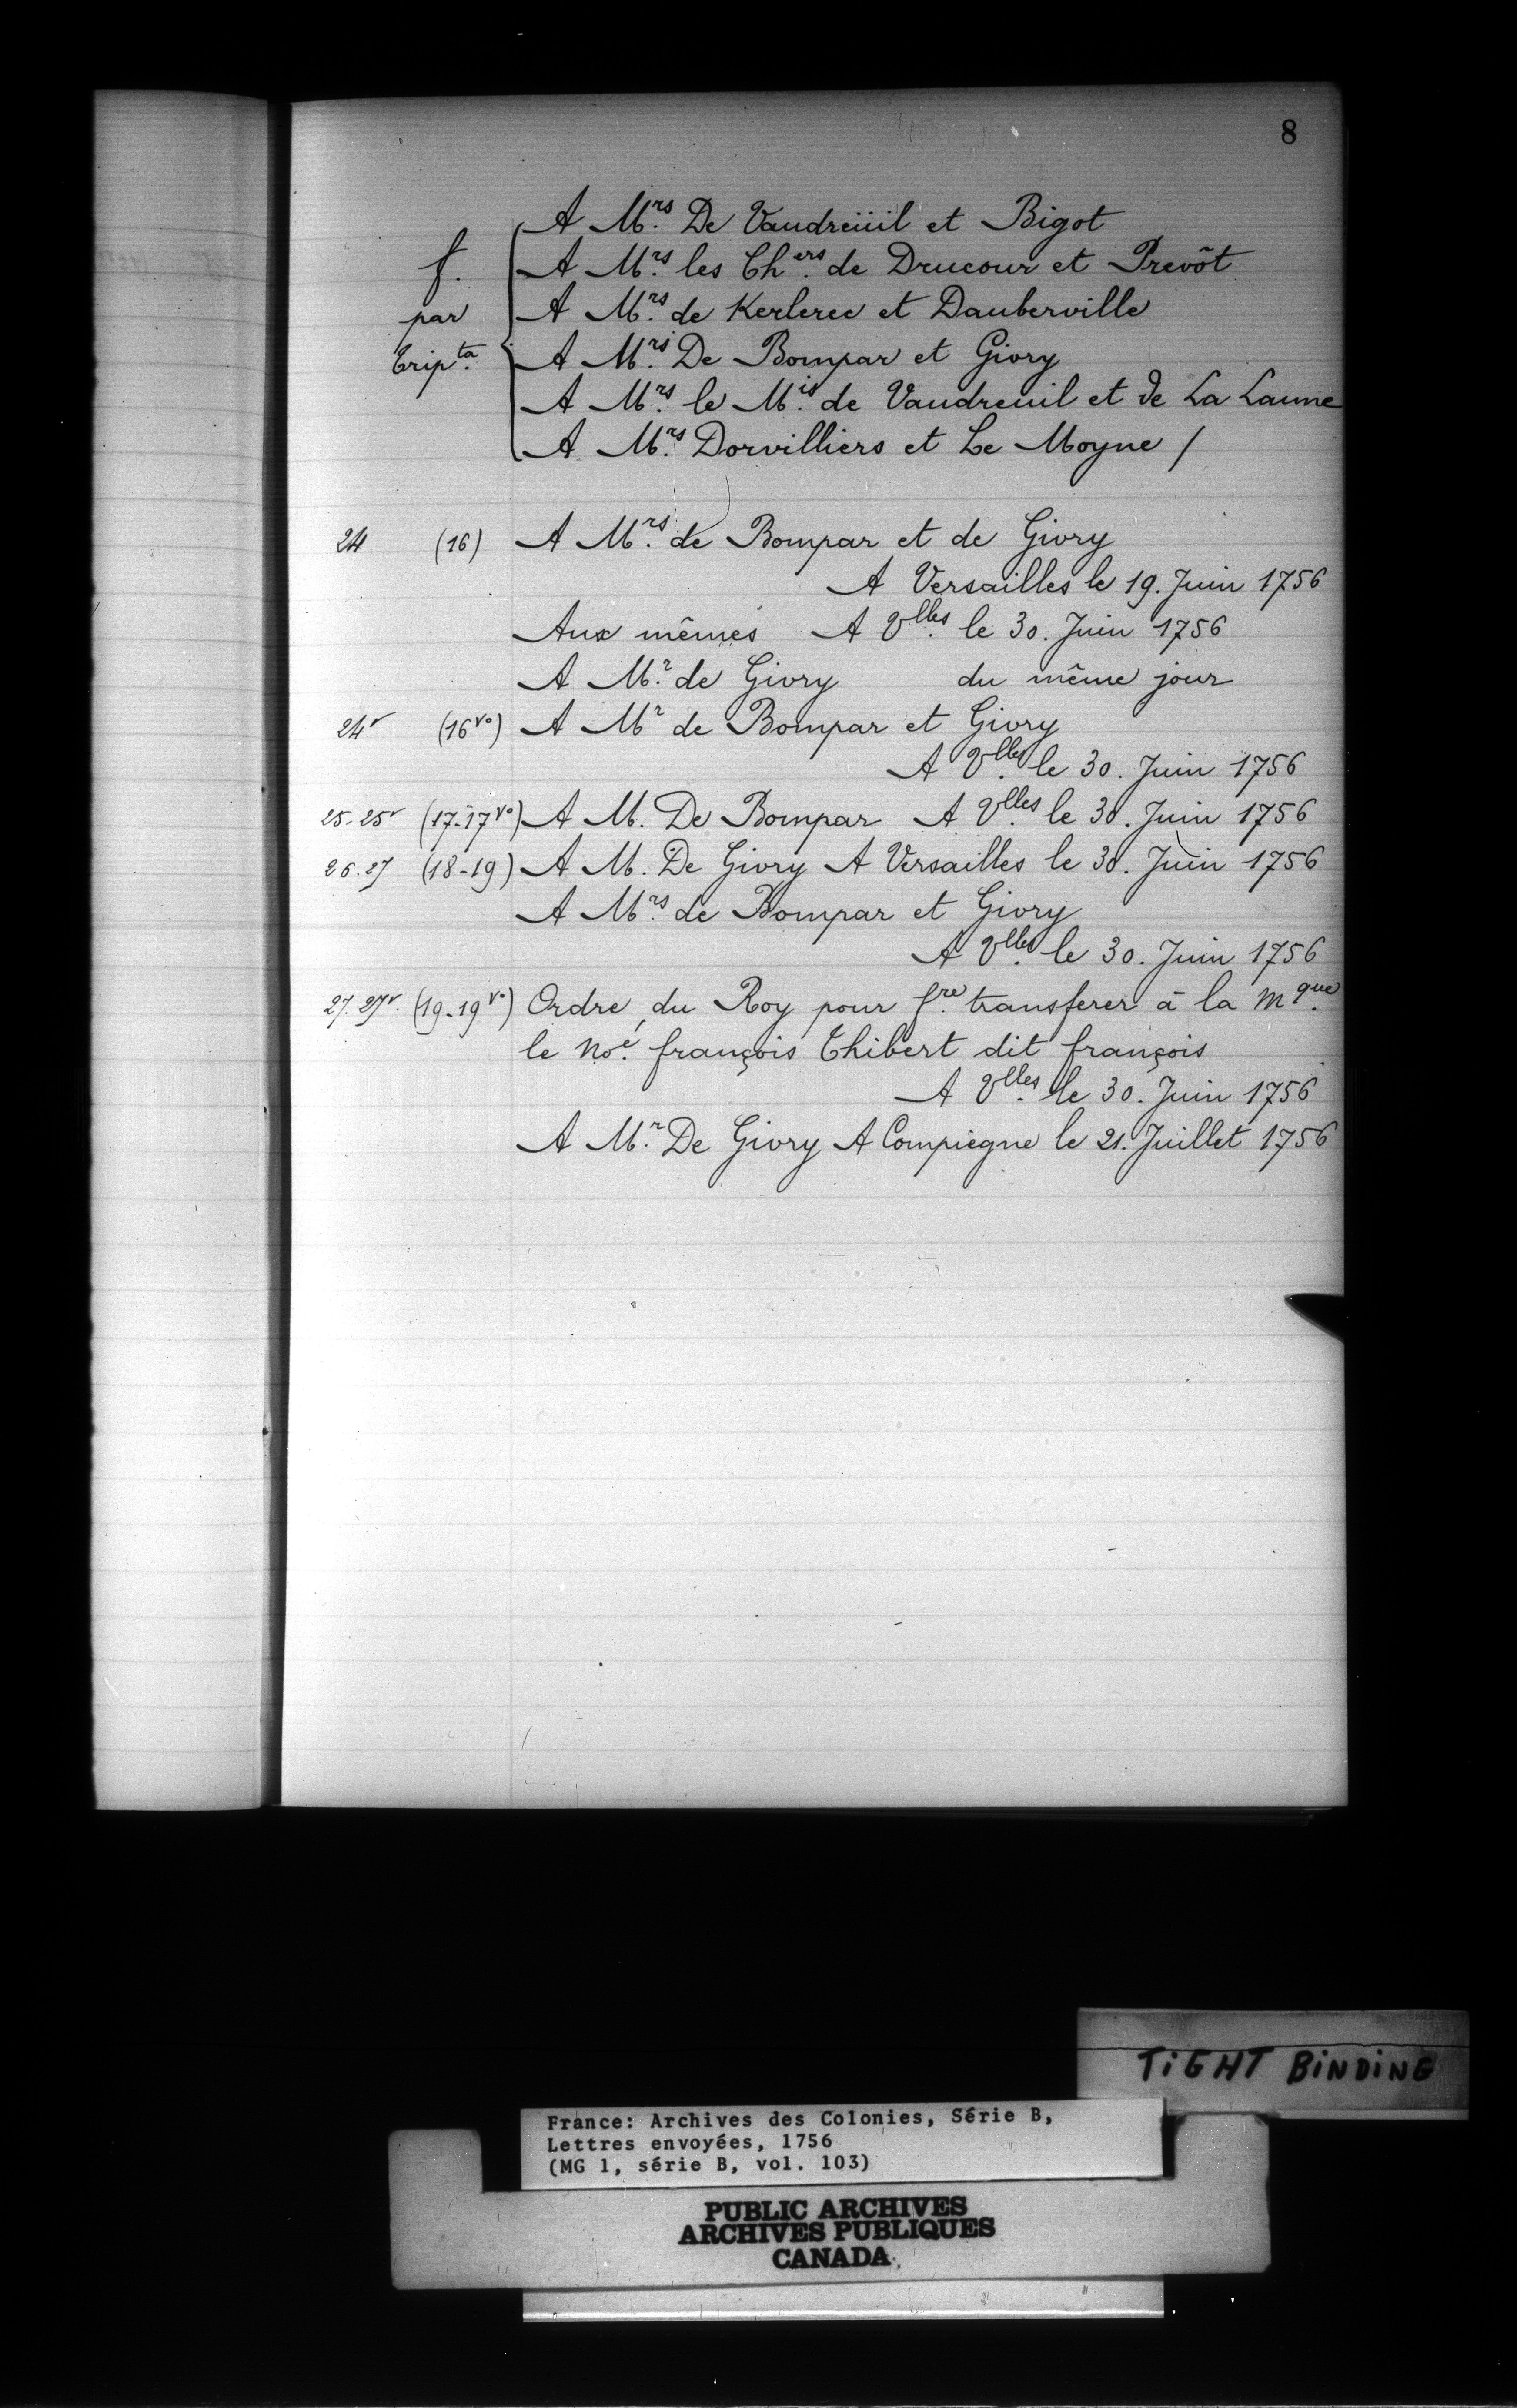 8
A Mrs. De Vaudreüil et Bigot
f. A Mrs. les Chers. de Drucour et Prevôt
par A Mrs. de Kerlerec et Dauberville
tripta. A Mrs. De Bompar et Givry
A Mrs. le Mis. de Vaudreuil et de La Laune
A Mrs. Dorvilliers et Le Moyne /
24 (16) A Mrs. de Bompar et de Givry
A Versailles le 19. Juin 1756
Aux mêmes A Vlles. le 30. Juin 1756
A Mr. de Givry du même jour
24v (16vo) A Mr de Bompar et Givry
A Vlles. le 30. Juin 1756
25.25v (17-17vo) A M. De Bompar A Vlles. le 30. Juin 1756
26.27 (18-19) A M. De Givry A Versailles le 30. Juin 1756
A Mrs. de Bompar et Givry
A Vlles. le 30. Juin 1756
27.27v. (19-19vo) Ordre du Roy pour fre. transferer à la Mque.
le Noé. françois Thibert dit françois
A Vlles. le 30. Juin 1756
A Mr. De Givry A Compiegne le 21. Juillet 1756
TIGHT BINDING
France: Archives des Colonies, Série B,
Lettres envoyées, 1756
(MG 1, série B, vol. 103)
PUBLIC ARCHIVES
ARCHIVES PUBLIQUES
CANADA